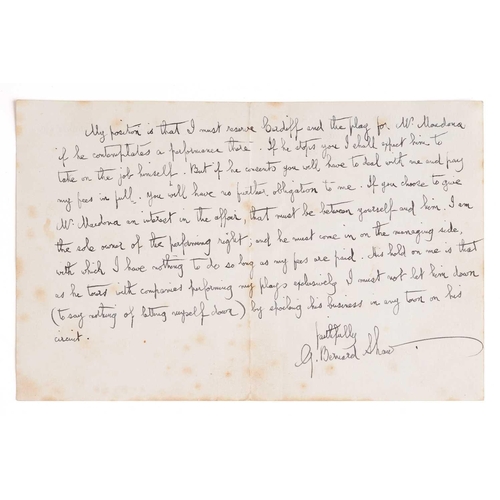 My position is that I must reserve Cardiff and the play for Mr Macdona
if he contemplates a performance there. If he stops you I shall expect him to
take on the job himself. But if he consents you will have to deal with me and pay
my fees in full. You will have no further obligation to me. If you choose to give
Mr Macdona an interest in the affair, that must be between yourself and him. I am
the sole owner of the performing right; and he must come in on the managing side,
with which I have nothing to do so long as my fees are paid. His hold on me is that
as he tours with companies performing my plays exclusively I must not let him down
(to say nothing of letting myself down) by spoiling his business in any town on his
circuit.
faithfully
G. Bernard Shaw